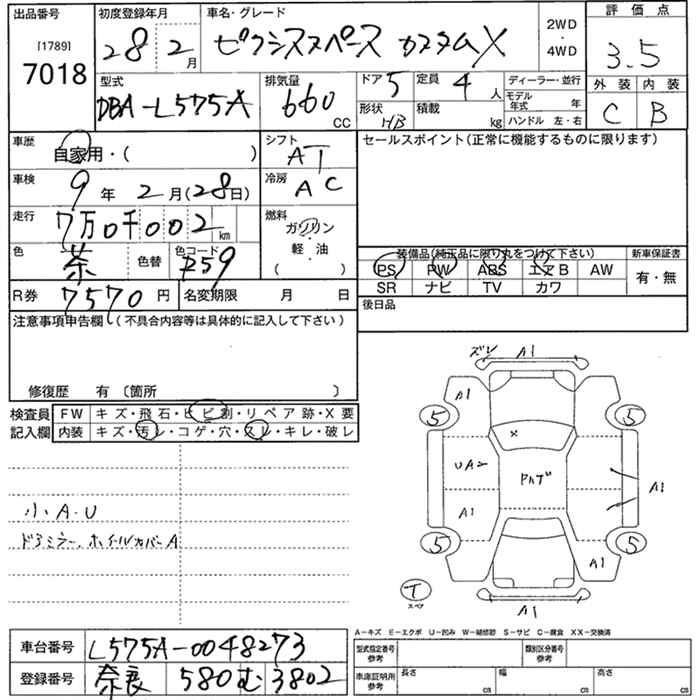 出品番号 初度登録年月 車名・グレード 2WD・4WD 評価点
[1789]
7018 28 2月 ピクシススペース カスタムX 3.5
型式 排気量 ドア 5 定員 4人 ディーラー・並行 外装 内装
DBA-L575A 660cc 形状 HB 積載 kg モデル年式 年 C B
ハンドル 左・右
車歴 自家用・( ) シフト AT セールスポイント(正常に機能するものに限ります)
車検 9年 2月(28日) 冷房 AC
走行 7万0千002km 燃料 ガソリン・軽・油
( )
色 茶 色替 色コード 装備品(純正品に限り丸をつけて下さい) 新車保証書
PS PW ABS エアB AW 有・無
SR ナビ TV カワ
R券 7570円 名変期限 月 日 後日品
注意事項申告欄(不具合内容等は具体的に記入して下さい)
修復歴 有〔箇所 〕
検査員 FW キズ・飛石・ヒビ割・リペア跡・X要
記入欄 内装 キズ・汚レ・コゲ・穴・スレ・キレ・破レ
小A.U
ドアミラー、ホイールカバーA
ズレ A1
A1
5 5
×
UA2
A1 A1
5 5
A1
T
スペア
A1
A-キズ E-エクボ U-凹み W-補修跡 S-サビ C-腐食 XX-交換済
車台番号 L575A-0048273 型式指定番号 参考 類別区分番号 参考
登録番号 奈良 580 む 3802 車庫証明用 参考 長さ cm 幅 cm 高さ cm